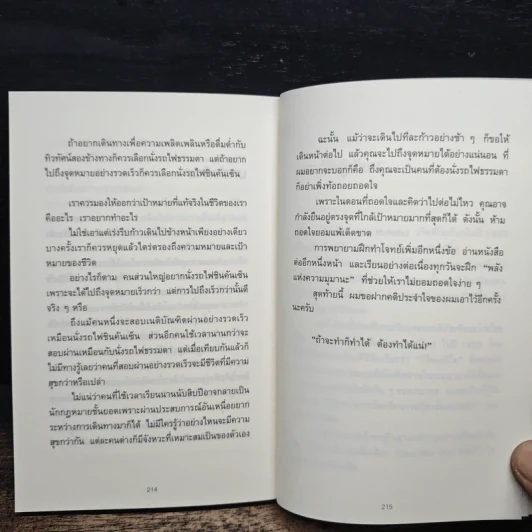 ถ้าอยากเดินทางเพื่อความเพลิดเพลินหรือดื่มด่ำกับ
ทิวทัศน์สองข้างทางก็ควรเลือกนั่งรถไฟธรรมดา แต่ถ้าอยาก
ไปถึงจุดหมายอย่างรวดเร็วก็ควรเลือกนั่งรถไฟชินคันเซ็น
เราควรมองให้ออกว่าเป้าหมายที่แท้จริงในชีวิตของเรา
คืออะไร เราอยากทำอะไร
ไม่ใช่เอาแต่เร่งรีบก้าวเดินไปข้างหน้าเพียงอย่างเดียว
บางครั้งเราก็ควรหยุดแล้วไตร่ตรองถึงความหมายและเป้า
หมายของชีวิต
อย่างไรก็ตาม คนส่วนใหญ่อยากนั่งรถไฟชินคันเซ็น
เพราะจะได้ไปถึงจุดหมายเร็วกว่า แต่การไปถึงเร็วกว่านั้นดี
จริง ๆ หรือ
ถึงแม้คนหนึ่งจะสอบเนติบัณฑิตผ่านอย่างรวดเร็ว
เหมือนนั่งรถไฟชินคันเซ็น ส่วนอีกคนใช้เวลานานกว่าจะ
สอบผ่านเหมือนกับนั่งรถไฟธรรมดา แต่เมื่อเทียบกันแล้วก็
ไม่มีทางรู้เลยว่าคนที่สอบผ่านอย่างรวดเร็วจะมีชีวิตที่มีความ
สุขกว่าหรือเปล่า
ไม่แน่ว่าคนที่ใช้เวลาเรียนนานนับสิบปีอาจกลายเป็น
นักกฎหมายชั้นยอดเพราะผ่านประสบการณ์อันเหนื่อยยาก
ระหว่างการเดินทางมาก็ได้ ไม่มีใครรู้ว่าอย่างไหนจะมีความ
สุขกว่ากัน แต่ละคนต่างก็มีจังหวะที่เหมาะสมเป็นของตัวเอง
214
ฉะนั้น แม้ว่าจะเดินไปทีละก้าวอย่างช้า ๆ ก็ขอให้
เดินหน้าต่อไป แล้วคุณจะไปถึงจุดหมายได้อย่างแน่นอน ที่
ผมอยากจะบอกก็คือ ถึงคุณจะเป็นคนที่ต้องนั่งรถไฟธรรมดา
ก็อย่าเพิ่งท้อถอยถอดใจ
เพราะในตอนที่ถอดใจและคิดว่าไปต่อไม่ไหว คุณอาจ
กำลังยืนอยู่ตรงจุดที่ใกล้เป้าหมายมากที่สุดก็ได้ ดังนั้น ห้าม
ถอดใจยอมแพ้เด็ดขาด
การพยายามฝึกทำโจทย์เพิ่มอีกหนึ่งข้อ อ่านหนังสือ
ต่ออีกหนึ่งหน้า และเรียนอย่างต่อเนื่องทุกวันจะฝึก "พลัง
แห่งความมุมานะ" ที่ช่วยให้เราไม่ยอมถอดใจง่าย ๆ
สุดท้ายนี้ ผมขอฝากคติประจำใจของผมเอาไว้อีกครั้ง
นะครับ
"ถ้าจะทำก็ทำได้ ต้องทำได้แน่!"
215